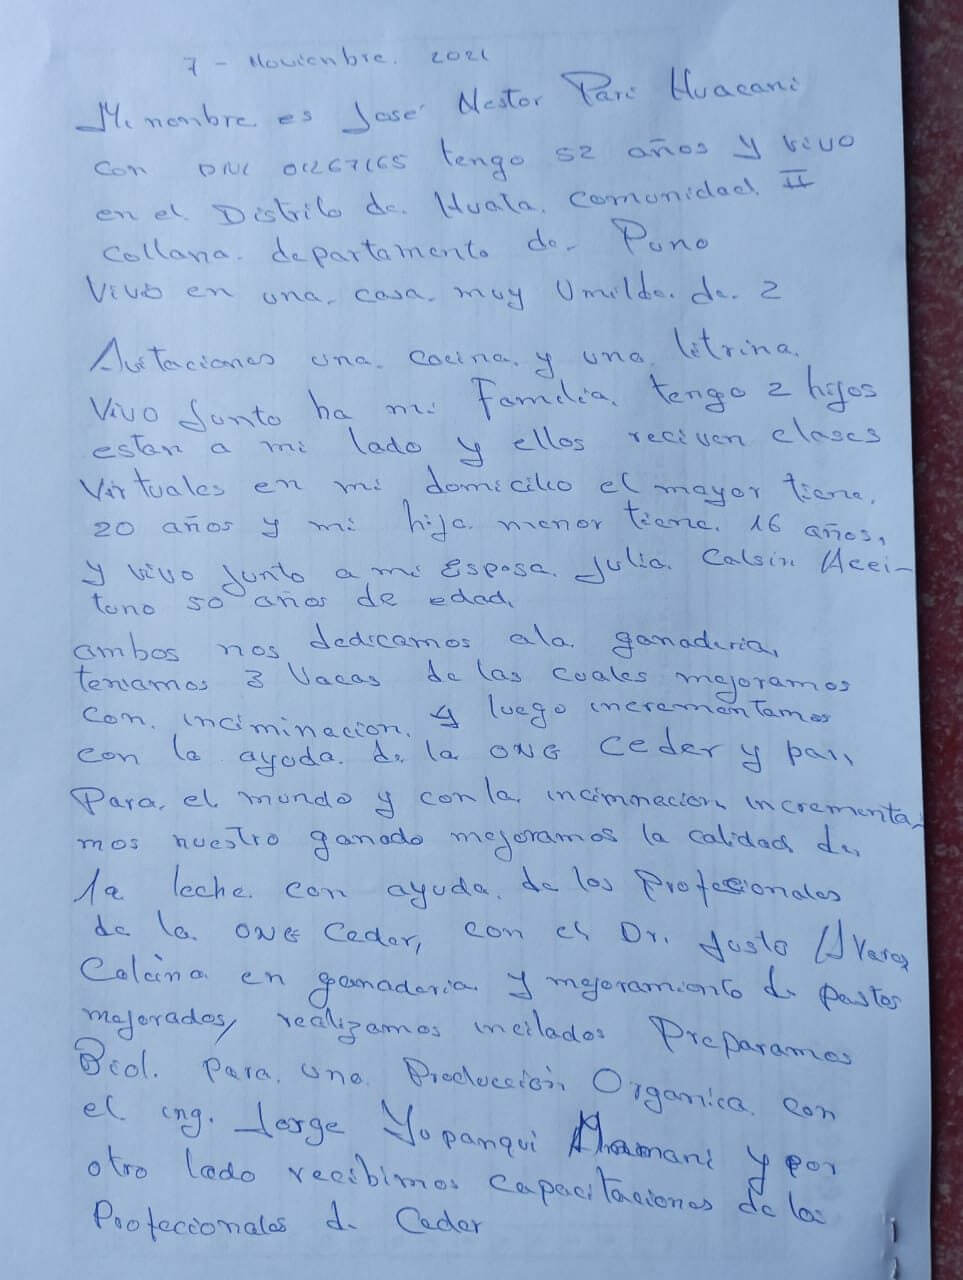 7 - Noviembre. 2021
Mi nombre es José Nestor Pari Huacani
con DNI 01267165 tengo 52 años y vivo
en el Distrito de Huata. Comunidad II
Collana. departamento de Puno
Vivo en una casa muy Umilde. de 2
Avitaciones una cocina y una letrina.
Vivo Junto ha mi Familia. tengo 2 hijos
estan a mi lado y ellos reciven clases
Virtuales en mi domicilio el mayor tiene.
20 años y mi hija menor tiene. 16 años,
y vivo Junto a mi Esposa. Julia. Calsin Acei-
tuno 50 años de edad,
ambos nos dedicamos ala ganaderia,
teniamos 3 Vacas de las cuales mejoramos
con. inciminacion. y luego incrementamos
con la ayuda. de la ONG Ceder y pan
Para. el mundo y con la incimnacion incrementa-
mos nuestro ganado mejoramos la calidad de
la leche. con ayuda de los Profesionales
de la ONG Ceder, con el Dr. Justo Alvarez
Colcina en ganaderia y mejoramiento de pastos
mejorados, realizamos incilados Preparamos
Biol. Para. una Producción Organica con
el ing. Jorge Yupanqui Mamani y por
otro lado recibimos capacitaciones de los
Profecionales de Ceder